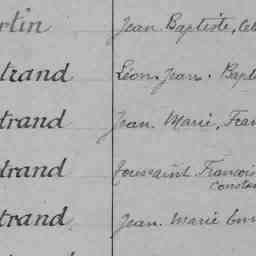 rtin Jean Baptiste, Cél
trand Léon, Jean. Bapt
trand Jean. Marie, Fran
trand Toussaint François
Constan
trand Jean. Marie Em